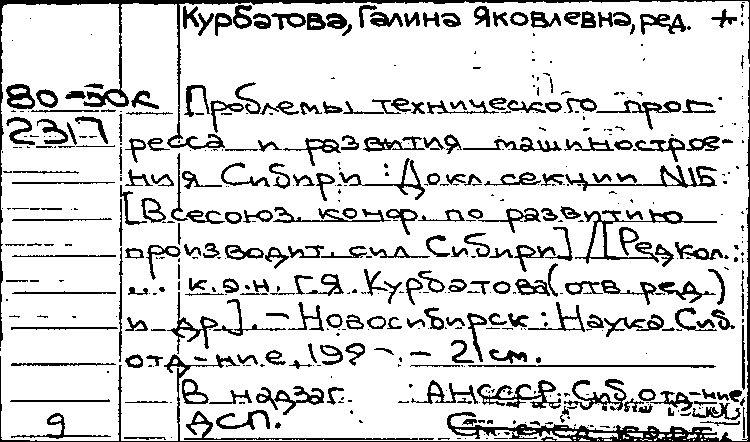 Курбатова, Галина Яковлевна, ред. +
80-50к Проблемы технического прог-
2317 ресса и развития машинострое-
ния Сибири: Докл. секции N1Б.
[Всесоюз. конф. по развитию
производит. сил Сибири] / [Редкол.:
... к.э.н. Г.Я. Курбатова (отв. ред.)
и др.]. - Новосибирск: Наука Сиб.
отд-ние, - 21 см.
В надзаг. : АН СССР. Сиб. отд-ние
9 ДСП.